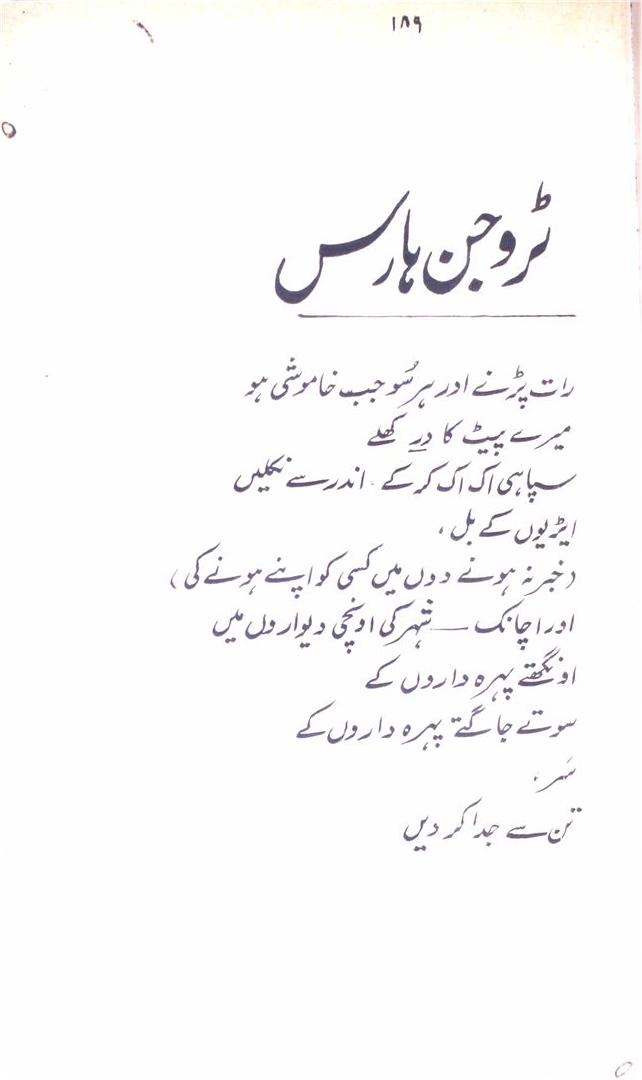 ۱۸۹
ٹروجن ہارس
رات پڑنے اور ہر سُو جب خاموشی ہو
میرے پیٹ کا در کھلے
سپاہی اک اک کر کے۔ اندر سے نکلیں
ایڑیوں کے بل،
(خبر نہ ہونے دوں میں کسی کو اپنے ہونے کی)
اور اچانک — شہر کی اونچی دیواروں میں
اونگھتے پہرہ داروں کے
سوتے جاگتے پہرہ داروں کے
سَر،
تن سے جدا کر دیں